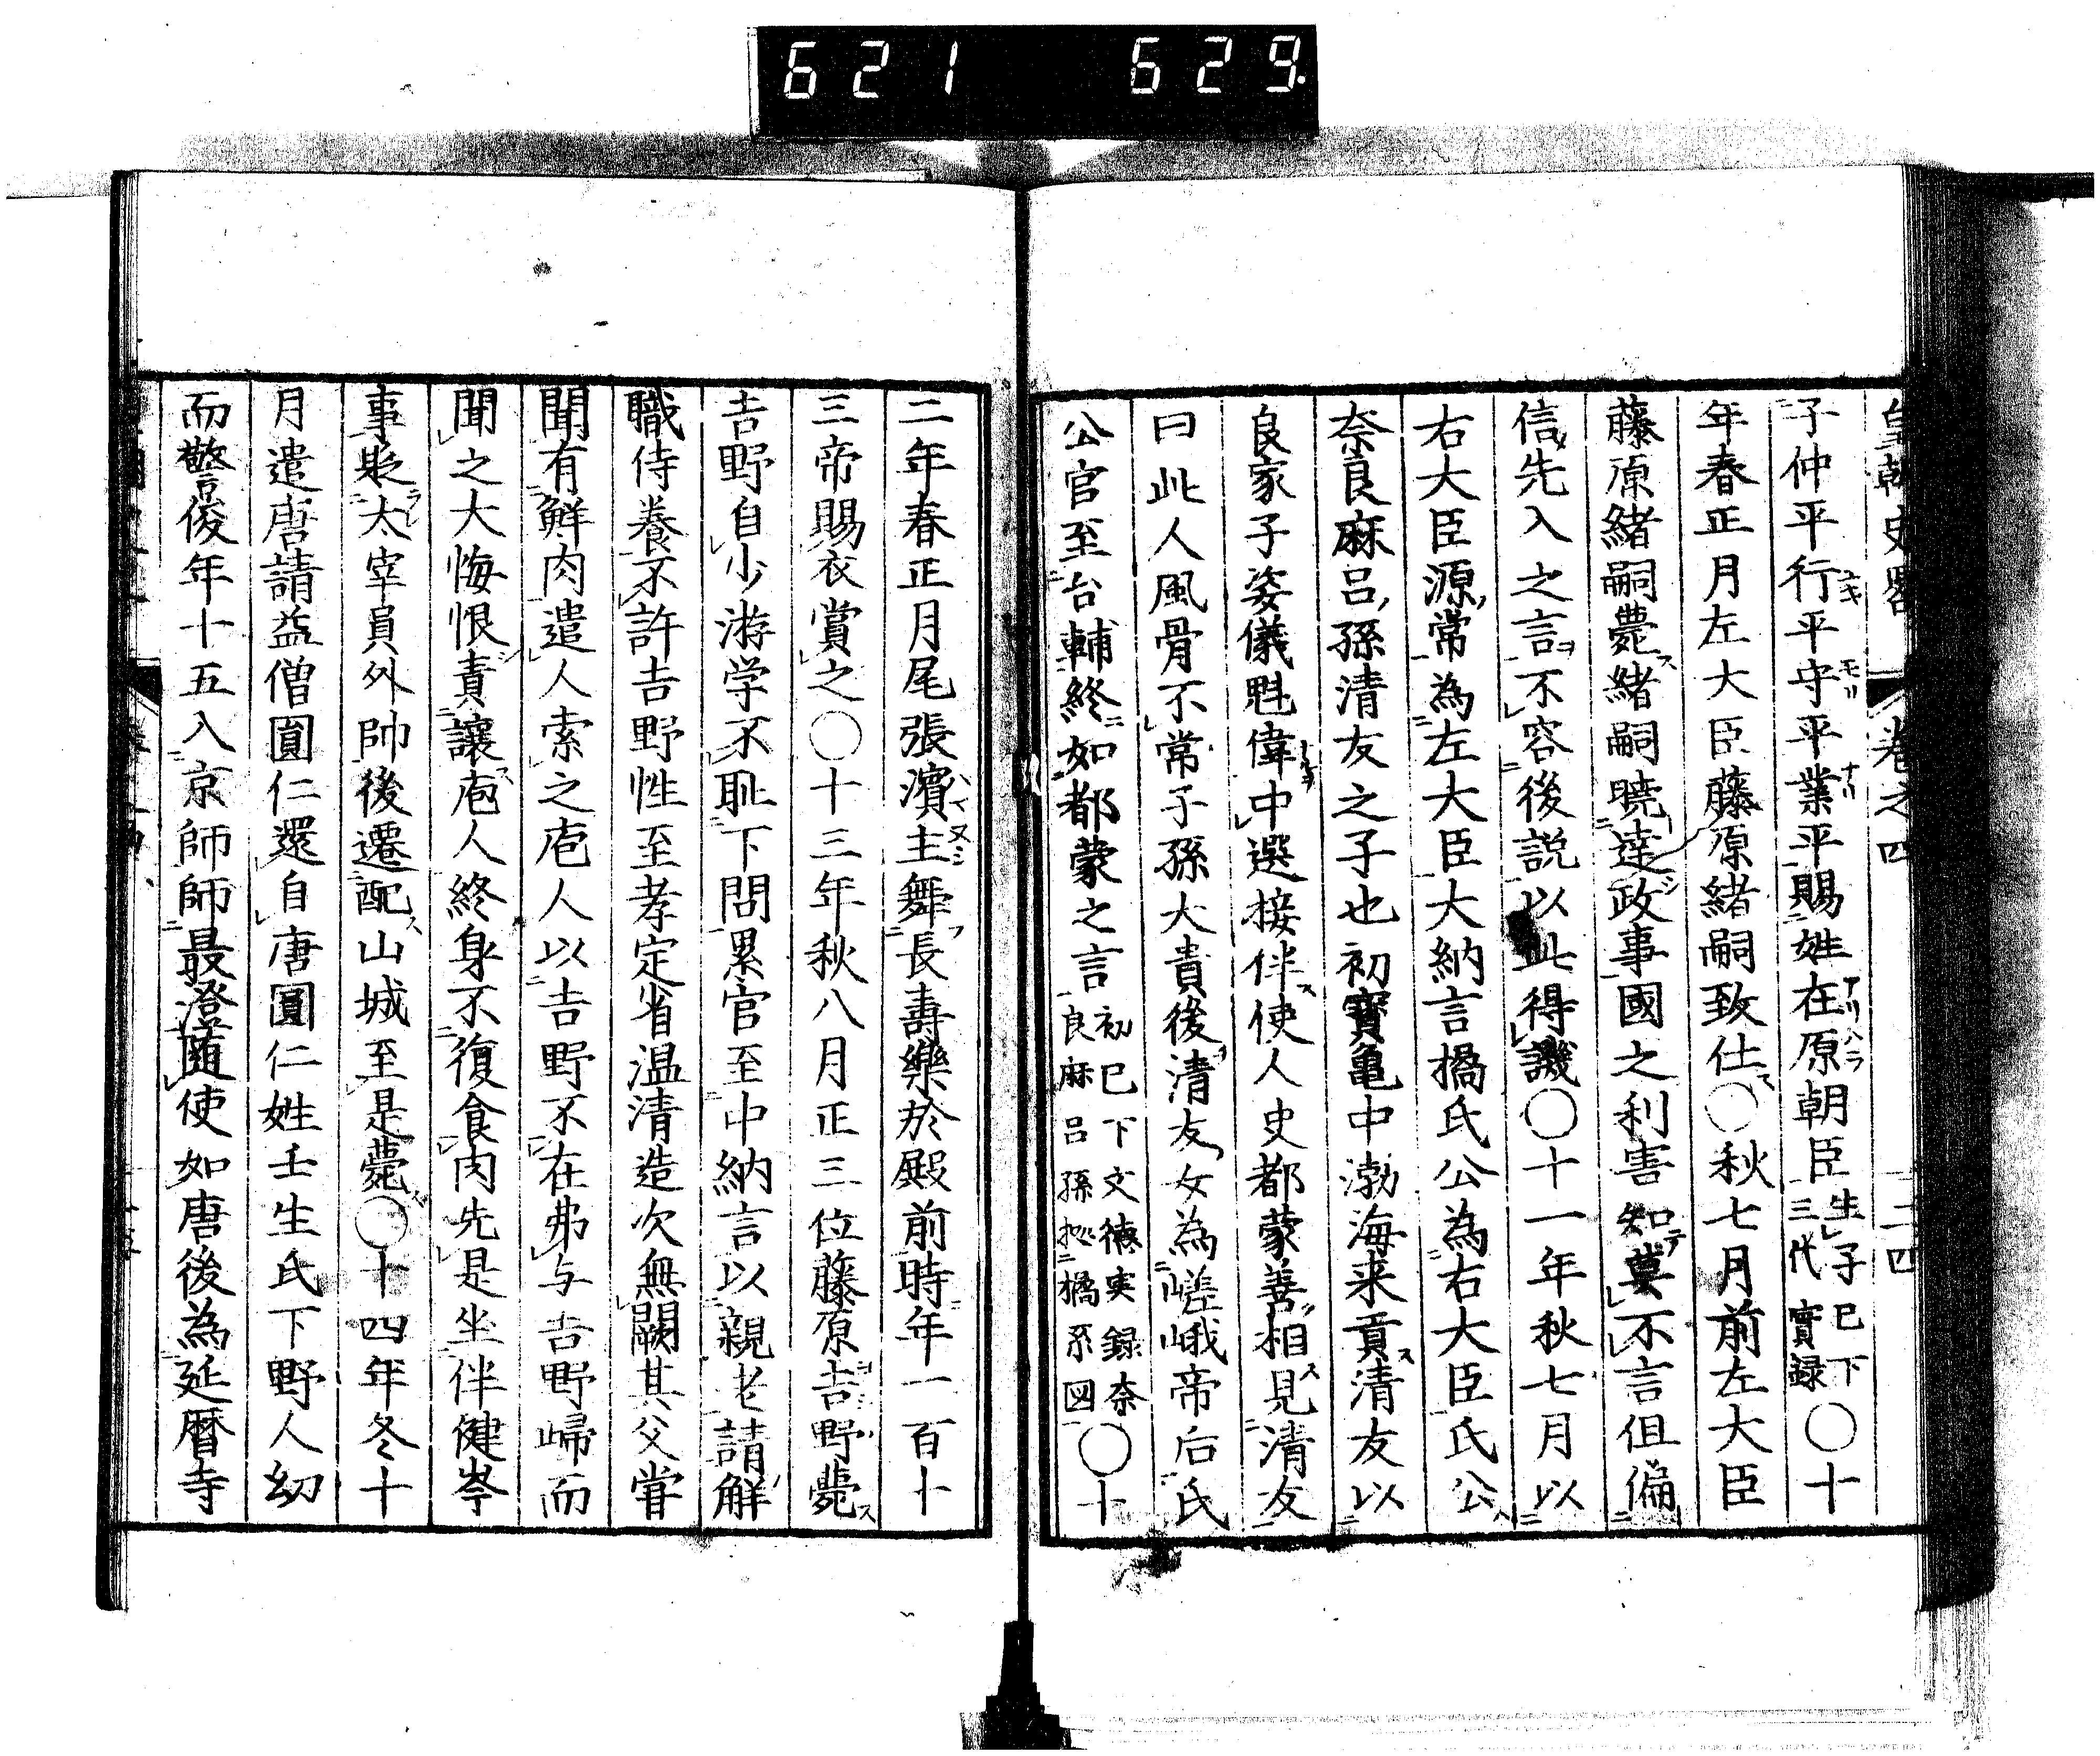 621 629
皇朝史畧 卷之四 二四
子仲平行平守平業平賜姓在原朝臣生子巳下三代實録〇十
年春正月左大臣藤原緒嗣致仕〇秋七月前左大臣
藤原緒嗣薨緒嗣曉達政事國之利害知莫不言但偏
信先入之言不容後説以此得譏〇十一年秋七月以
右大臣源常為左大臣大納言橘氏公為右大臣氏公
奈良麻呂孫清友之子也初寶亀中渤海来貢清友以
良家子姿儀魁偉中選接伴使人史都蒙善相見清友
曰此人風骨不常子孫大貴後清友女為嵯峨帝后氏
公官至台輔終如都蒙之言初巳下文德実録奈良麻呂孫拠橘系図〇十
二年春正月尾張濱主舞長壽樂於殿前時年一百十
三帝賜衣賞之〇十三年秋八月正三位藤原吉野薨
吉野自少游学不耻下問累官至中納言以親老請解
職侍養不許吉野性至孝定省温清造次無闕其父甞
聞有鮮肉遣人索之庖人以吉野不在弗与吉野歸而
聞之大悔恨責讓庖人終身不復食肉先是坐伴健岑
事貶太宰員外帥後遷配山城至是薨〇十四年冬十
月遣唐請益僧圓仁還自唐圓仁姓壬生氏下野人幼
而警俊年十五入京師師最澄隨使如唐後為延暦寺